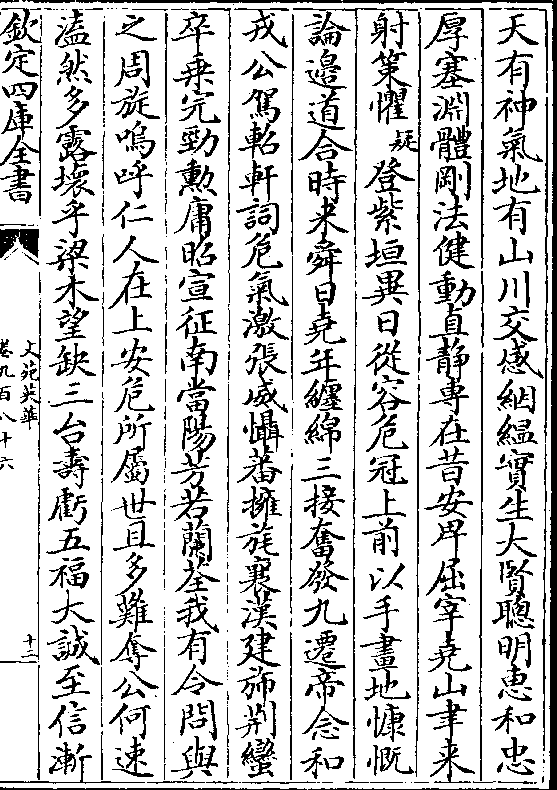 天有神氣地有山川交感絪緼實生大賢聰明惠和忠
厚塞淵體剛法健動直静專在昔安卑屈宰堯山聿来
射策懼疑登紫垣異日從容危冠上前以手畫地慷慨
論邉道合時来舜日堯年纏綿三接奮發九遷帝念和
戎公駕軺軒詞危氣激張威懾蕃擁旄襄漢建斾荆蠻
卒乗完勁勲庸昭宣征南當陽芳若蘭荃我有令問與
之周旋嗚呼仁人在上安危所屬世且多難奪公何速
溘然多露壊乎梁木望缺三台壽虧五福大誠至信漸
欽定四庫全書
文苑英華
卷九百八十六
十二